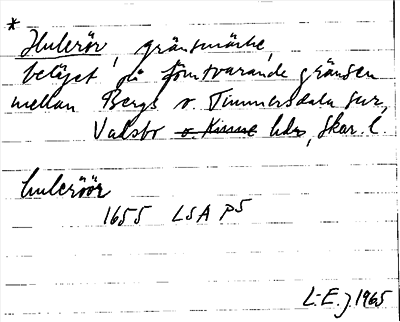 *
Hulerör, gränsmärke,
beläget på förutvarande gränsen
mellan Bergs o. Timmersdala snr,
Valsbo o. Kinne hdr, Skar. l.
huleröör
1655 LSA P5
L-E. J 1965